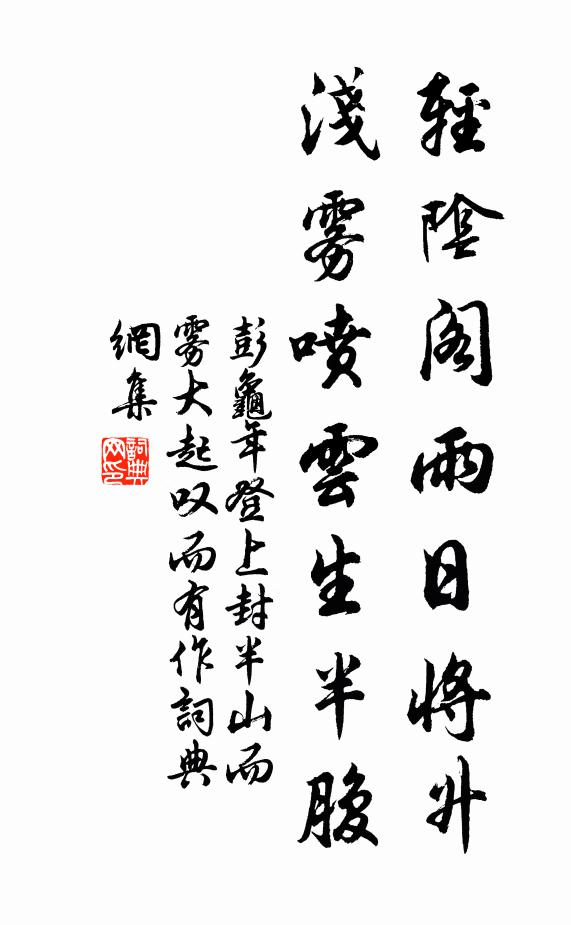 輕陰閣雨日將升
淺雾噴雲生半腹
彭龜年登上封半山而
雾大起叹而有作詞典
網集
詞典網印